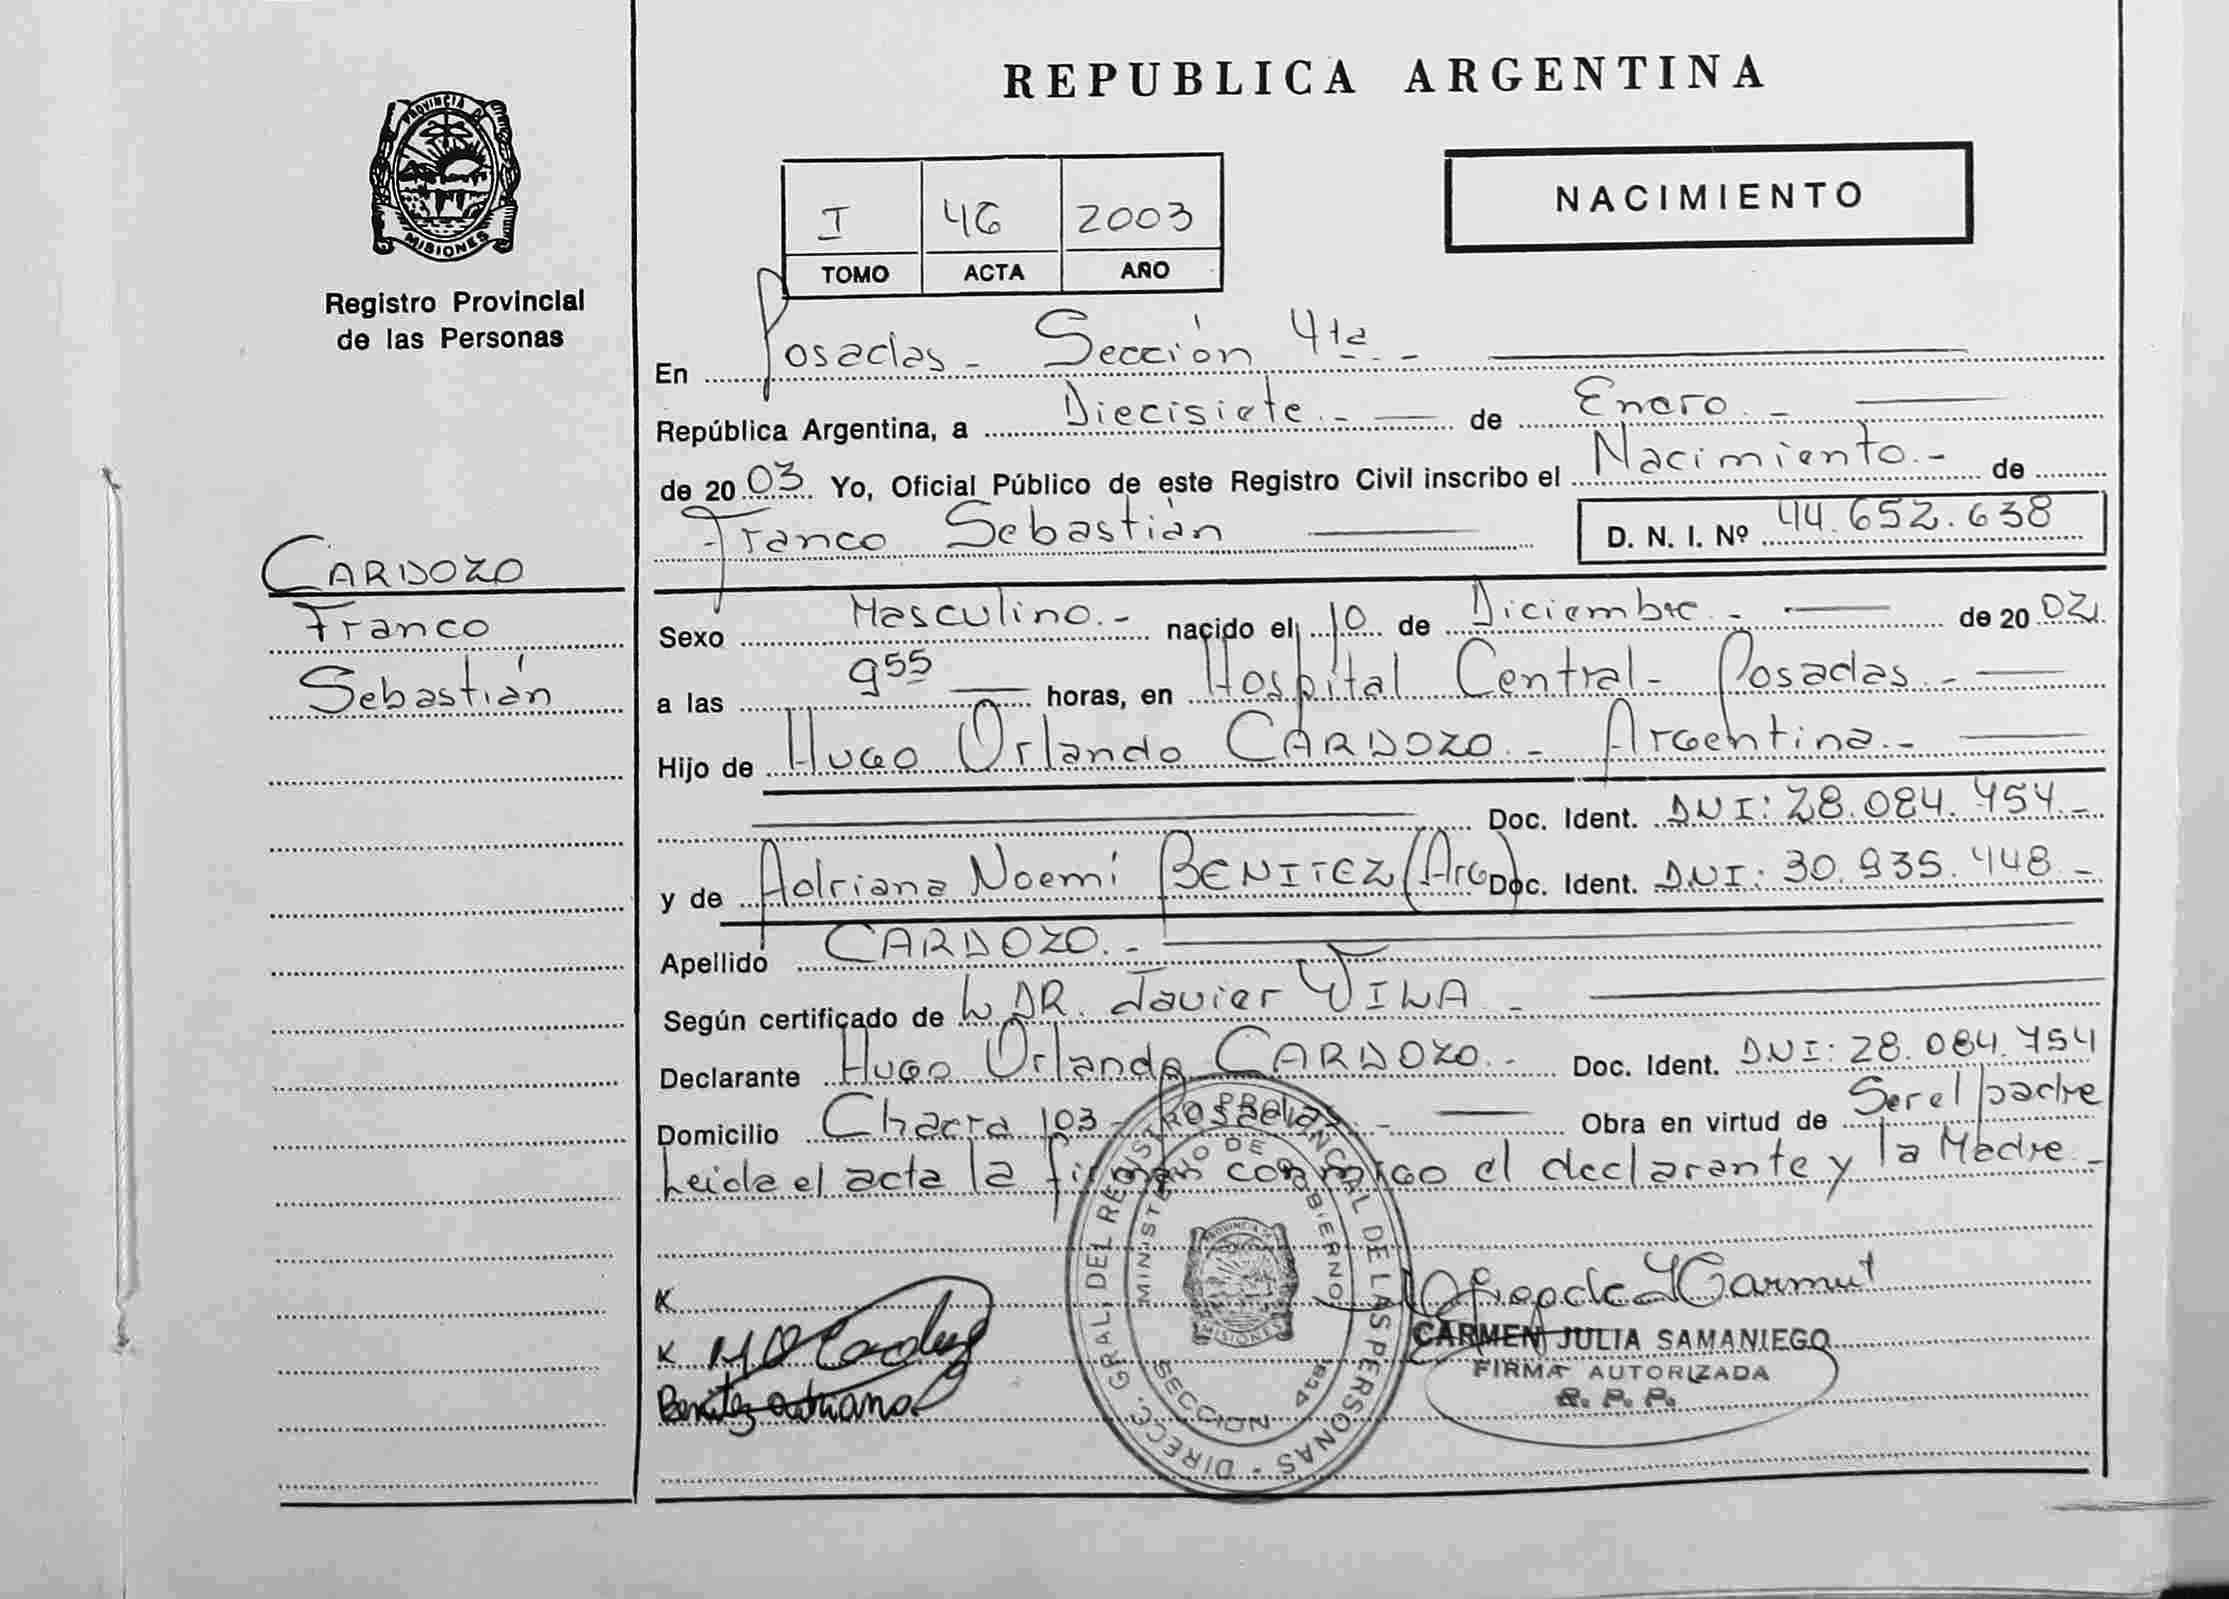 REPUBLICA ARGENTINA
PROVINCIA DE
MISIONES
Registro Provincial
de las Personas
NACIMIENTO
I 46 2003
TOMO ACTA AÑO
En Posadas - Sección 4ta. -
República Argentina, a Diecisiete. - de Enero. -
de 20 03 Yo, Oficial Público de este Registro Civil inscribo el Nacimiento. - de
Franco Sebastián D. N. I. Nº 44.652.638
CARDOZO
Franco
Sebastián
Sexo Masculino. - nacido el 10 de Diciembre. - de 20 02.
a las 9 55 horas, en Hospital Central - Posadas. -
Hijo de Hugo Orlando CARDOZO. - Argentina. -
Doc. Ident. DNI: 28.084.754. -
y de Adriana Noemí BENITEZ (Arg) Doc. Ident. DNI: 30.935.448. -
Apellido CARDOZO. -
Según certificado de DR. Javier VILA -
Declarante Hugo Orlando CARDOZO. - Doc. Ident. DNI: 28.084.754
Domicilio Chacra 103 - Posadas - Obra en virtud de Ser el padre
Leida el acta la firman conmigo el declarante y la Madre -
DIRECC. GRAL. DEL REGISTRO PROVINCIAL DE LAS PERSONAS -
MINISTERIO DE GOBIERNO
PROVINCIA DE
MISIONES
SECCION 4ta.
Benitez Adriana
CARMEN JULIA SAMANIEGO
FIRMA AUTORIZADA
R. P. P.